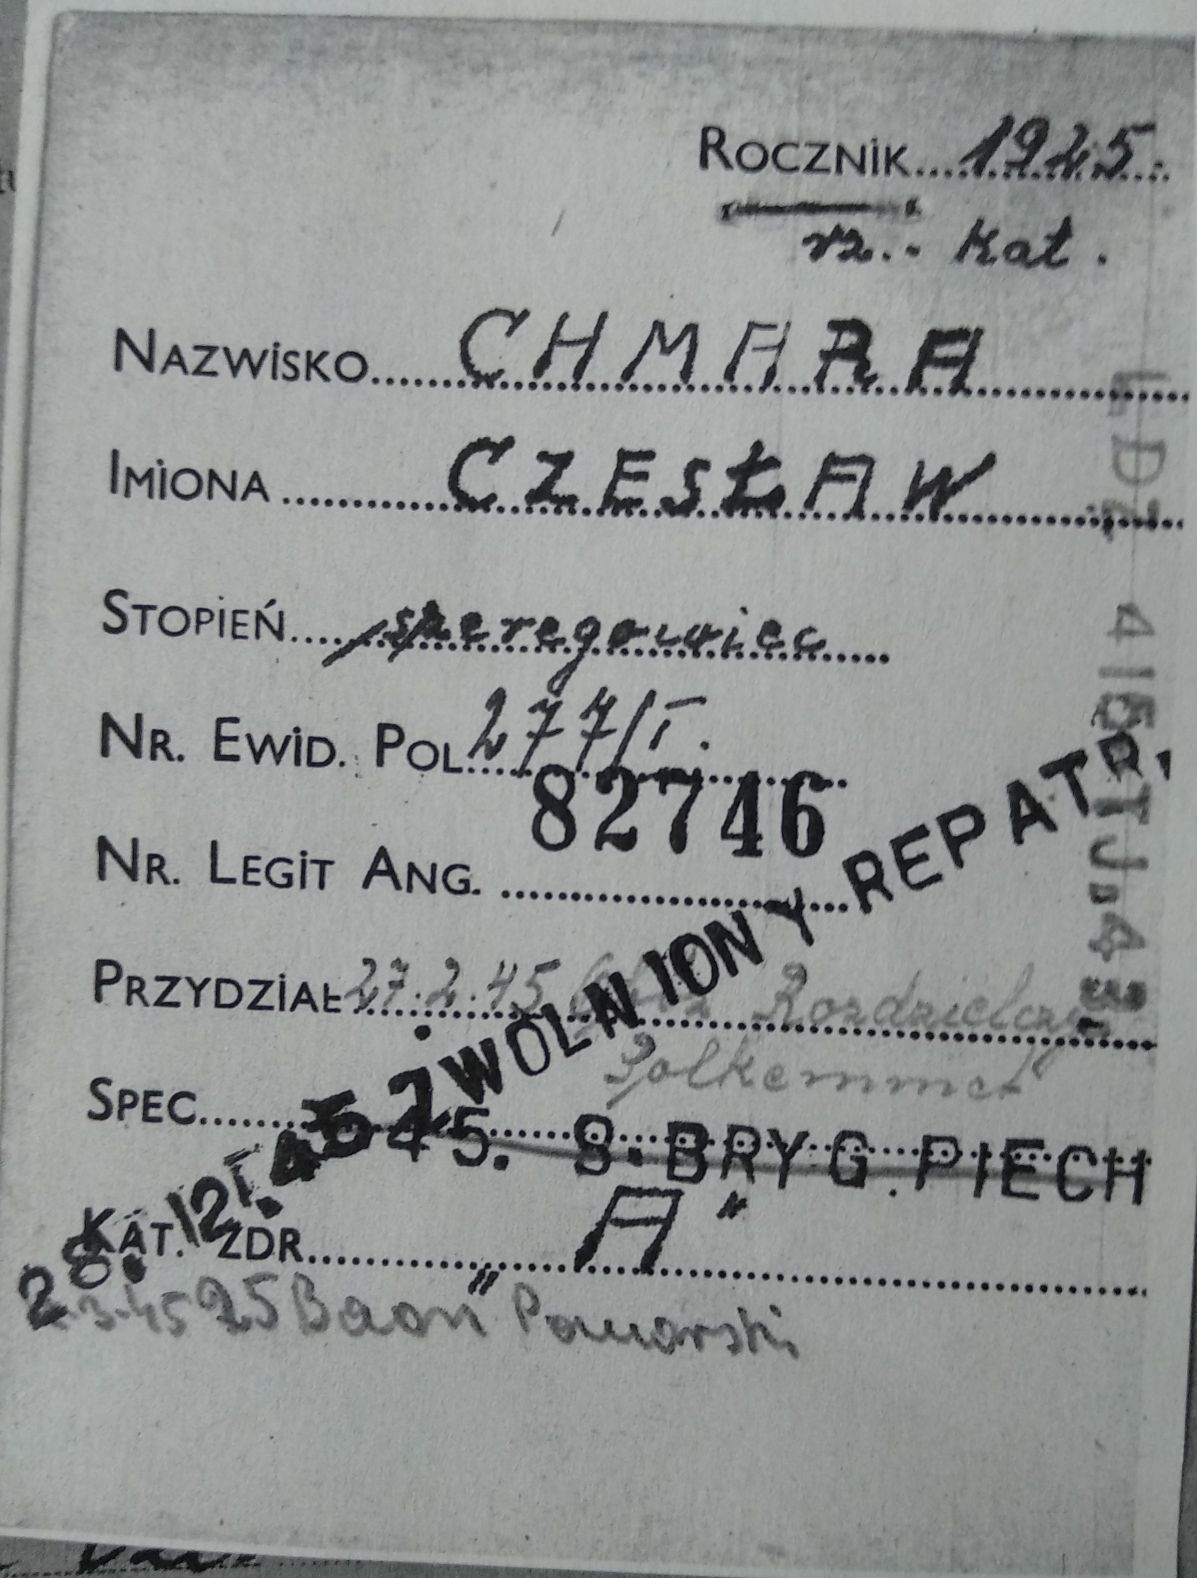 ROCZNIK....1925...
rz... kat.
NAZWISKO...CHMARA
IMIONA...CZESŁAW
STOPIEŃ...szeregowiec
NR. EWID. POL....277/I.
82746
NR. LEGIT ANG. ...
PRZYDZIAŁ 27.2.45 Rozdzielczy
Polkemmet
SPEC...
45. 8. BRYG. PIECH
KAT. ZDR... "A"
28. 12. 45 ZWOLNIONY REPATR.
3.45 25 Baon Pomorski
LDZ 4165